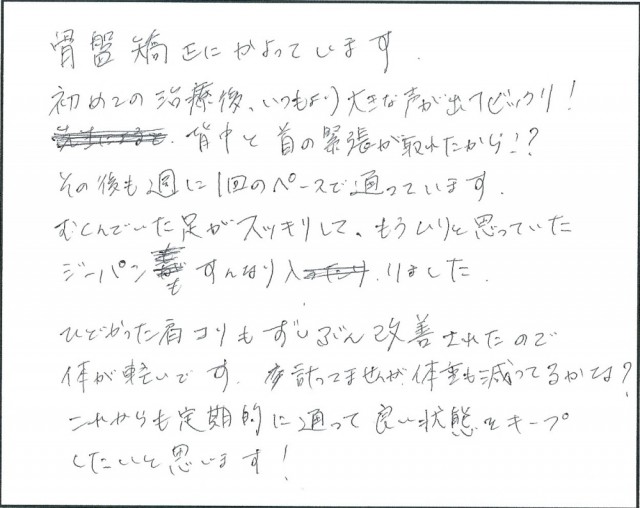 骨盤矯正にかよっています.
初めての治療後、いつもより大きな声が出てビックリ!
背中と首の緊張が取れたから!?
その後も週に1回のペースで通っています.
むくんでいた足がスッキリして、もうムリと思っていた
ジーパンもすんなり入りました.
ひどかった肩コリもずいぶん改善されたので
体が軽いです. 計ってませんが体重も減ってるかな?
これからも定期的に通って良い状態をキープ
したいと思います!